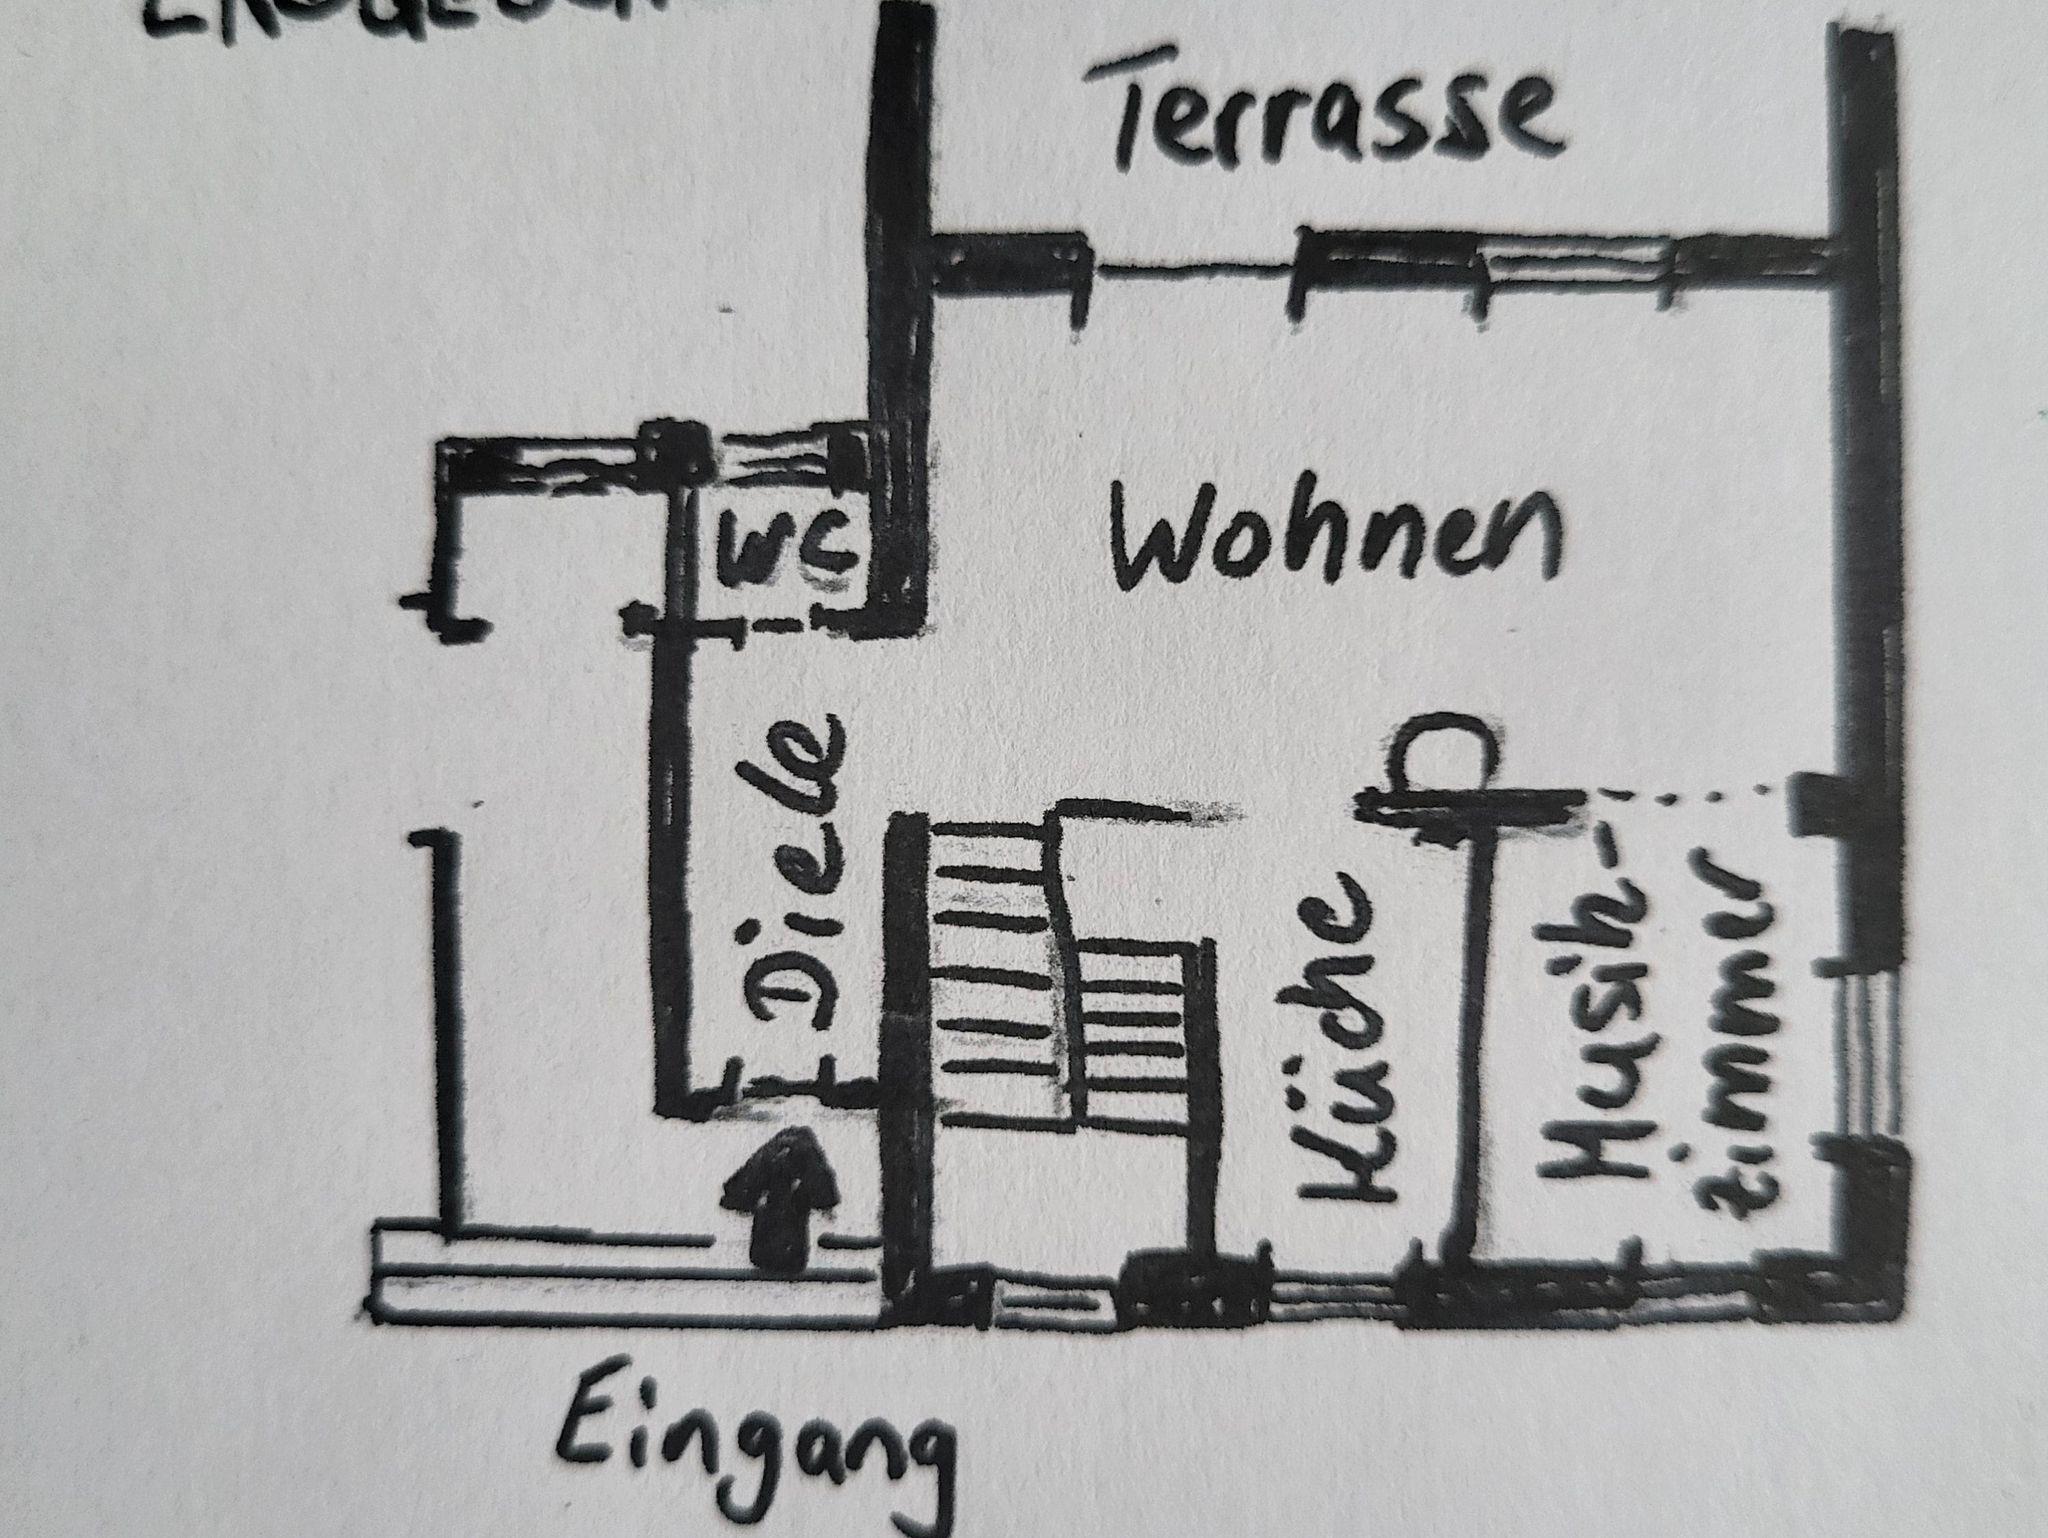 Terrasse
WC
Wohnen
Diele
Küche
Musik-
zimmer
Eingang